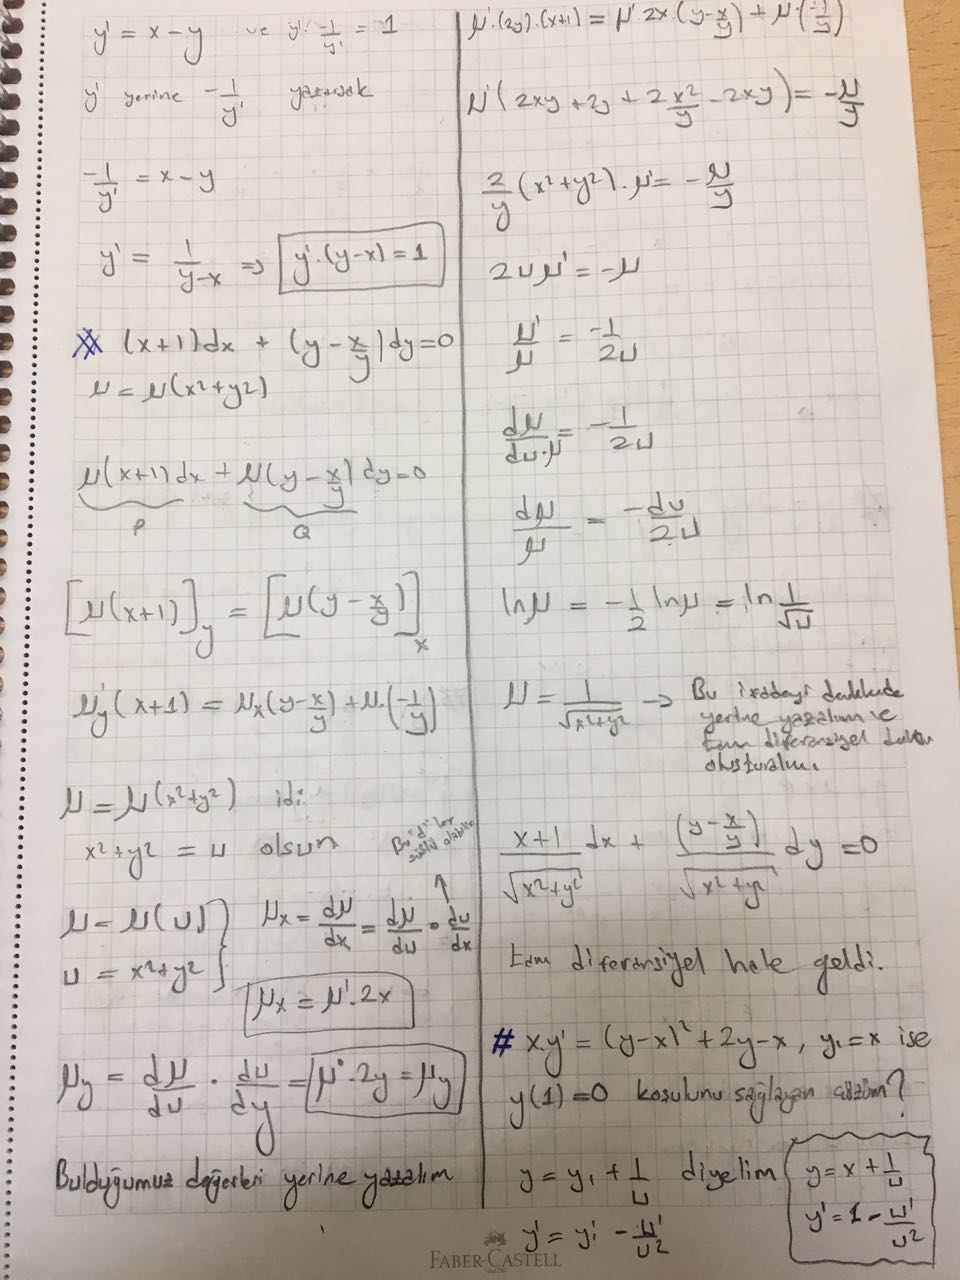 y' = x - y ve y' · -1/y' = 1
y' yerine -1/y' yazarsak
-1/y' = x - y
y' = 1/(y-x) ⇒ y'·(y-x) = 1
(x+1)dx + (y - x/y)dy = 0
μ = μ(x²+y²)
μ(x+1)dx + μ(y - x/y)dy = 0
P Q
[μ(x+1)]y = [μ(y - x/y)]x
μy'(x+1) = μx(y - x/y) + μ·(-1/y)
μ = μ(x²+y²) idi
x²+y² = u olsun
Bu "d" ler
μ = μ(u)
u = x²+y²
μx = dμ/dx = dμ/du · du/dx
μx = μ'·2x
μy = dμ/du · du/dy = μ'·2y = μy
Bulduğumuz değerleri yerine yazalım
μ'·(2y)·(x+1) = μ' 2x·(y - x/y) + μ·(-1/y)
μ'(2xy + 2y + 2x²/y - 2xy) = -μ/y
2/y (x²+y²)·μ' = -μ/y
2uμ' = -μ
μ'/μ = -1/2u
dμ/du·μ = -1/2u
dμ/μ = -du/2u
lnμ = -1/2 lnμ = ln 1/√u
μ = 1/√x²+y² → Bu ifadeyi denklemde
yerine yazalım ve
tam diferansiyel
oluşturalım.
x+1/√x²+y² dx + (y - x/y)/√x²+y² dy = 0
tam diferansiyel hale geldi.
# x.y' = (y-x)² + 2y - x, y₁ = x ise
y(1) = 0 koşulunu sağlayan çözüm?
y = y₁ + 1/u diyelim
y' = y₁' - u'/u²
y = x + 1/u
y' = 1 - u'/u²
FABER-CASTELL